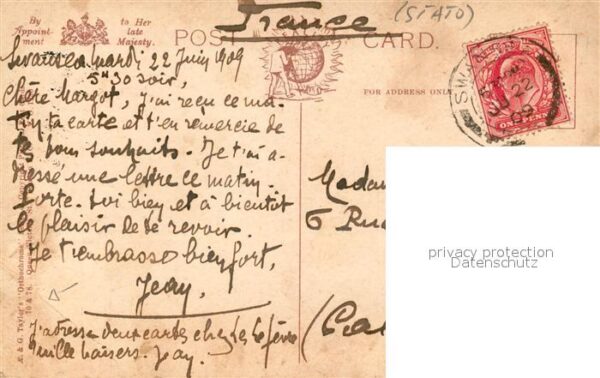 France
(STATO)
By Appointment
to Her late Majesty.
POST CARD.
FOR ADDRESS ONLY
Swansea mardi 22 Juin 1909
5h30 soir,
Chère Margot, J'ai reçu ce ma-
tin ta carte et t'en remercie de
te bons souhaits. Je t'ai a-
dressé une lettre ce matin.
Porte-toi bien et à bientôt
le plaisir de te revoir.
Je t'embrasse bien fort,
Jean.
J'adresse deux cartes chez les Lefèvre
mille baisers. Jean.
A. & G. Taylor's "Orthochrome"
70 & 78,
Mada
6 Rue
(Ca
SWANSEA
JU 22
09
ONE PENNY
privacy protection
Datenschutz